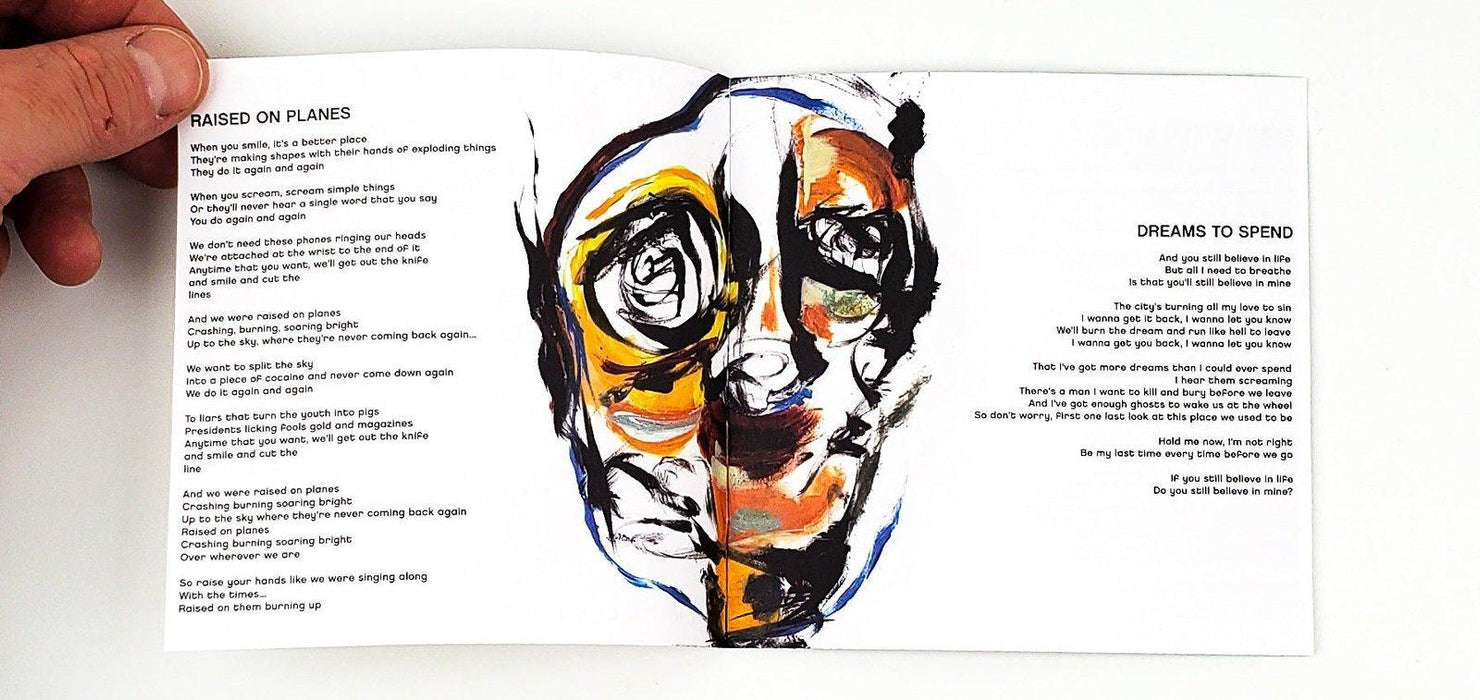 RAISED ON PLANES
When you smile, it's a better place
They're making shapes with their hands of exploding things
They do it again and again
When you scream, scream simple things
Or they'll never hear a single word that you say
You do again and again
We don't need these phones ringing our heads
We're attached at the wrist to the end of it
Anytime that you want, we'll get out the knife
and smile and cut the
lines
And we were raised on planes
Crashing, burning, soaring bright
Up to the sky, where they're never coming back again...
We want to split the sky
Into a piece of cocaine and never come down again
We do it again and again
To liars that turn the youth into pigs
Presidents licking fools gold and magazines
Anytime that you want, we'll get out the knife
and smile and cut the
line
And we were raised on planes
Crashing burning soaring bright
Up to the sky where they're never coming back again
Raised on planes
Crashing burning soaring bright
Over wherever we are
So raise your hands like we were singing along
With the times...
Raised on them burning up
DREAMS TO SPEND
And you still believe in life
But all I need to breathe
Is that you'll still believe in mine
The city's turning all my love to sin
I wanna get it back, I wanna let you know
We'll burn the dream and run like hell to leave
I wanna get you back, I wanna let you know
That I've got more dreams than I could ever spend
I hear them screaming
There's a man I want to kill and bury before we leave
And I've got enough ghosts to wake us at the wheel
So don't worry, first one last look at this place we used to be
Hold me now, I'm not right
Be my last time every time before we go
If you still believe in life
Do you still believe in mine?